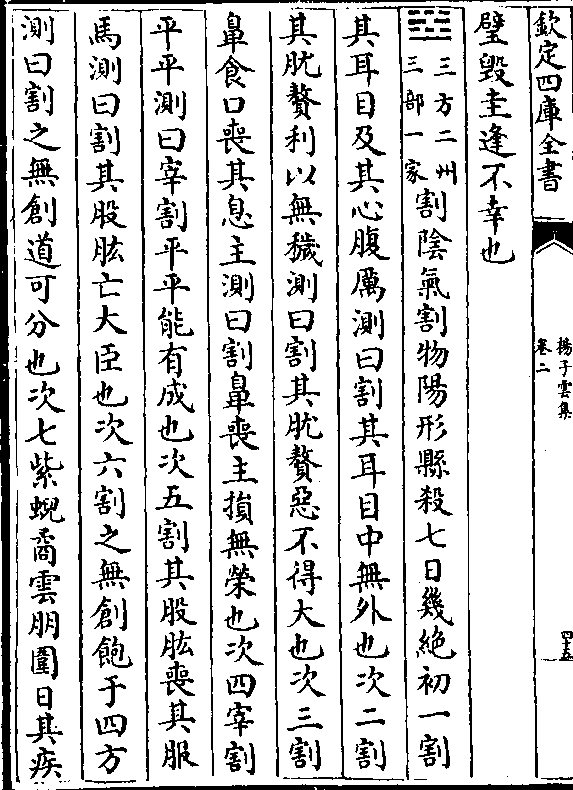 欽定四庫全書
揚子雲集
卷二
四十五
璧毀圭逢不幸也
三方二州
三部一家
割陰氣割物陽形縣殺七日幾絶初一割
其耳目及其心腹厲測曰割其耳目中無外也次二割
其肬贅利以無穢測曰割其肬贅惡不得大也次三割
鼻食口喪其息主測曰割鼻喪主損無榮也次四宰割
平平測曰宰割平平能有成也次五割其股肱喪其服
馬測曰割其股肱亡大臣也次六割之無創飽于四方
測曰割之無創道可分也次七紫蜺矞雲朋圍日其疾